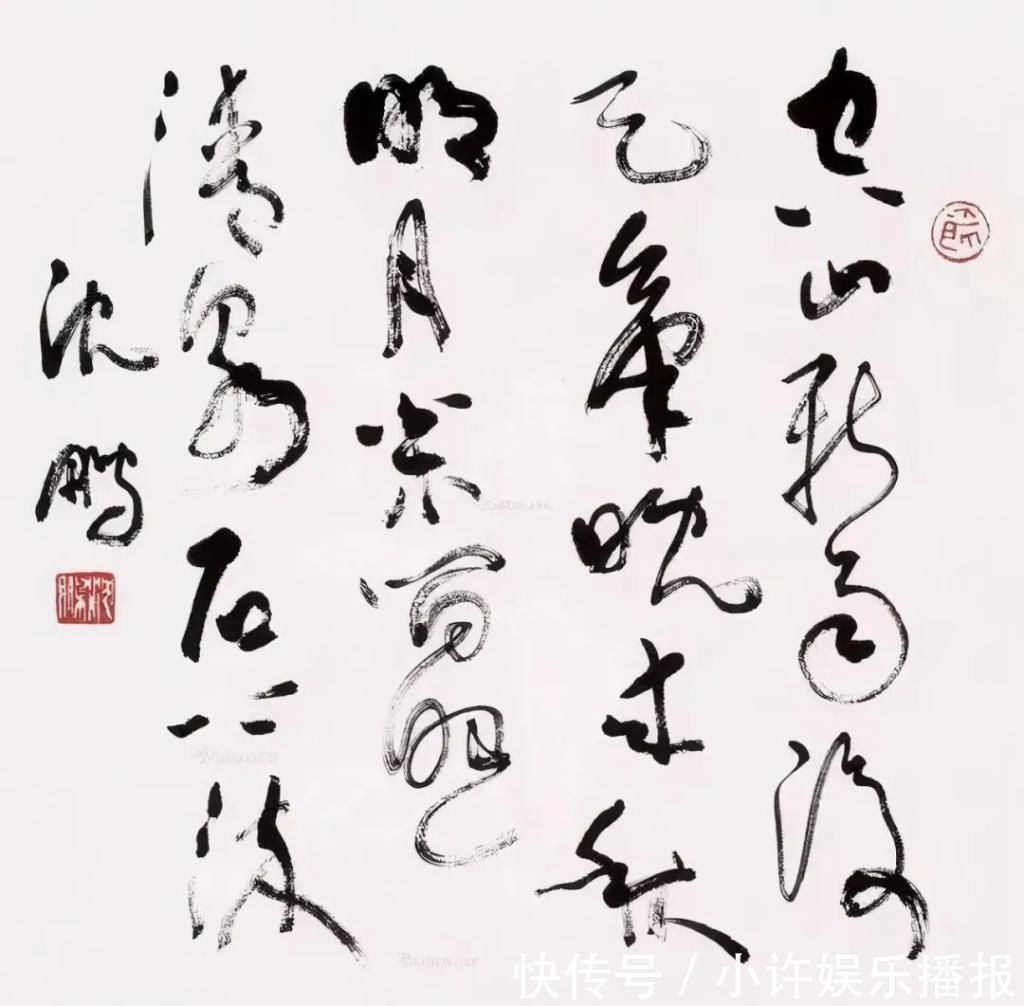 空山新雨後
天氣晚来秋
明月松間照
清泉石上流
沈鵬
快传号 / 小许娱乐播报